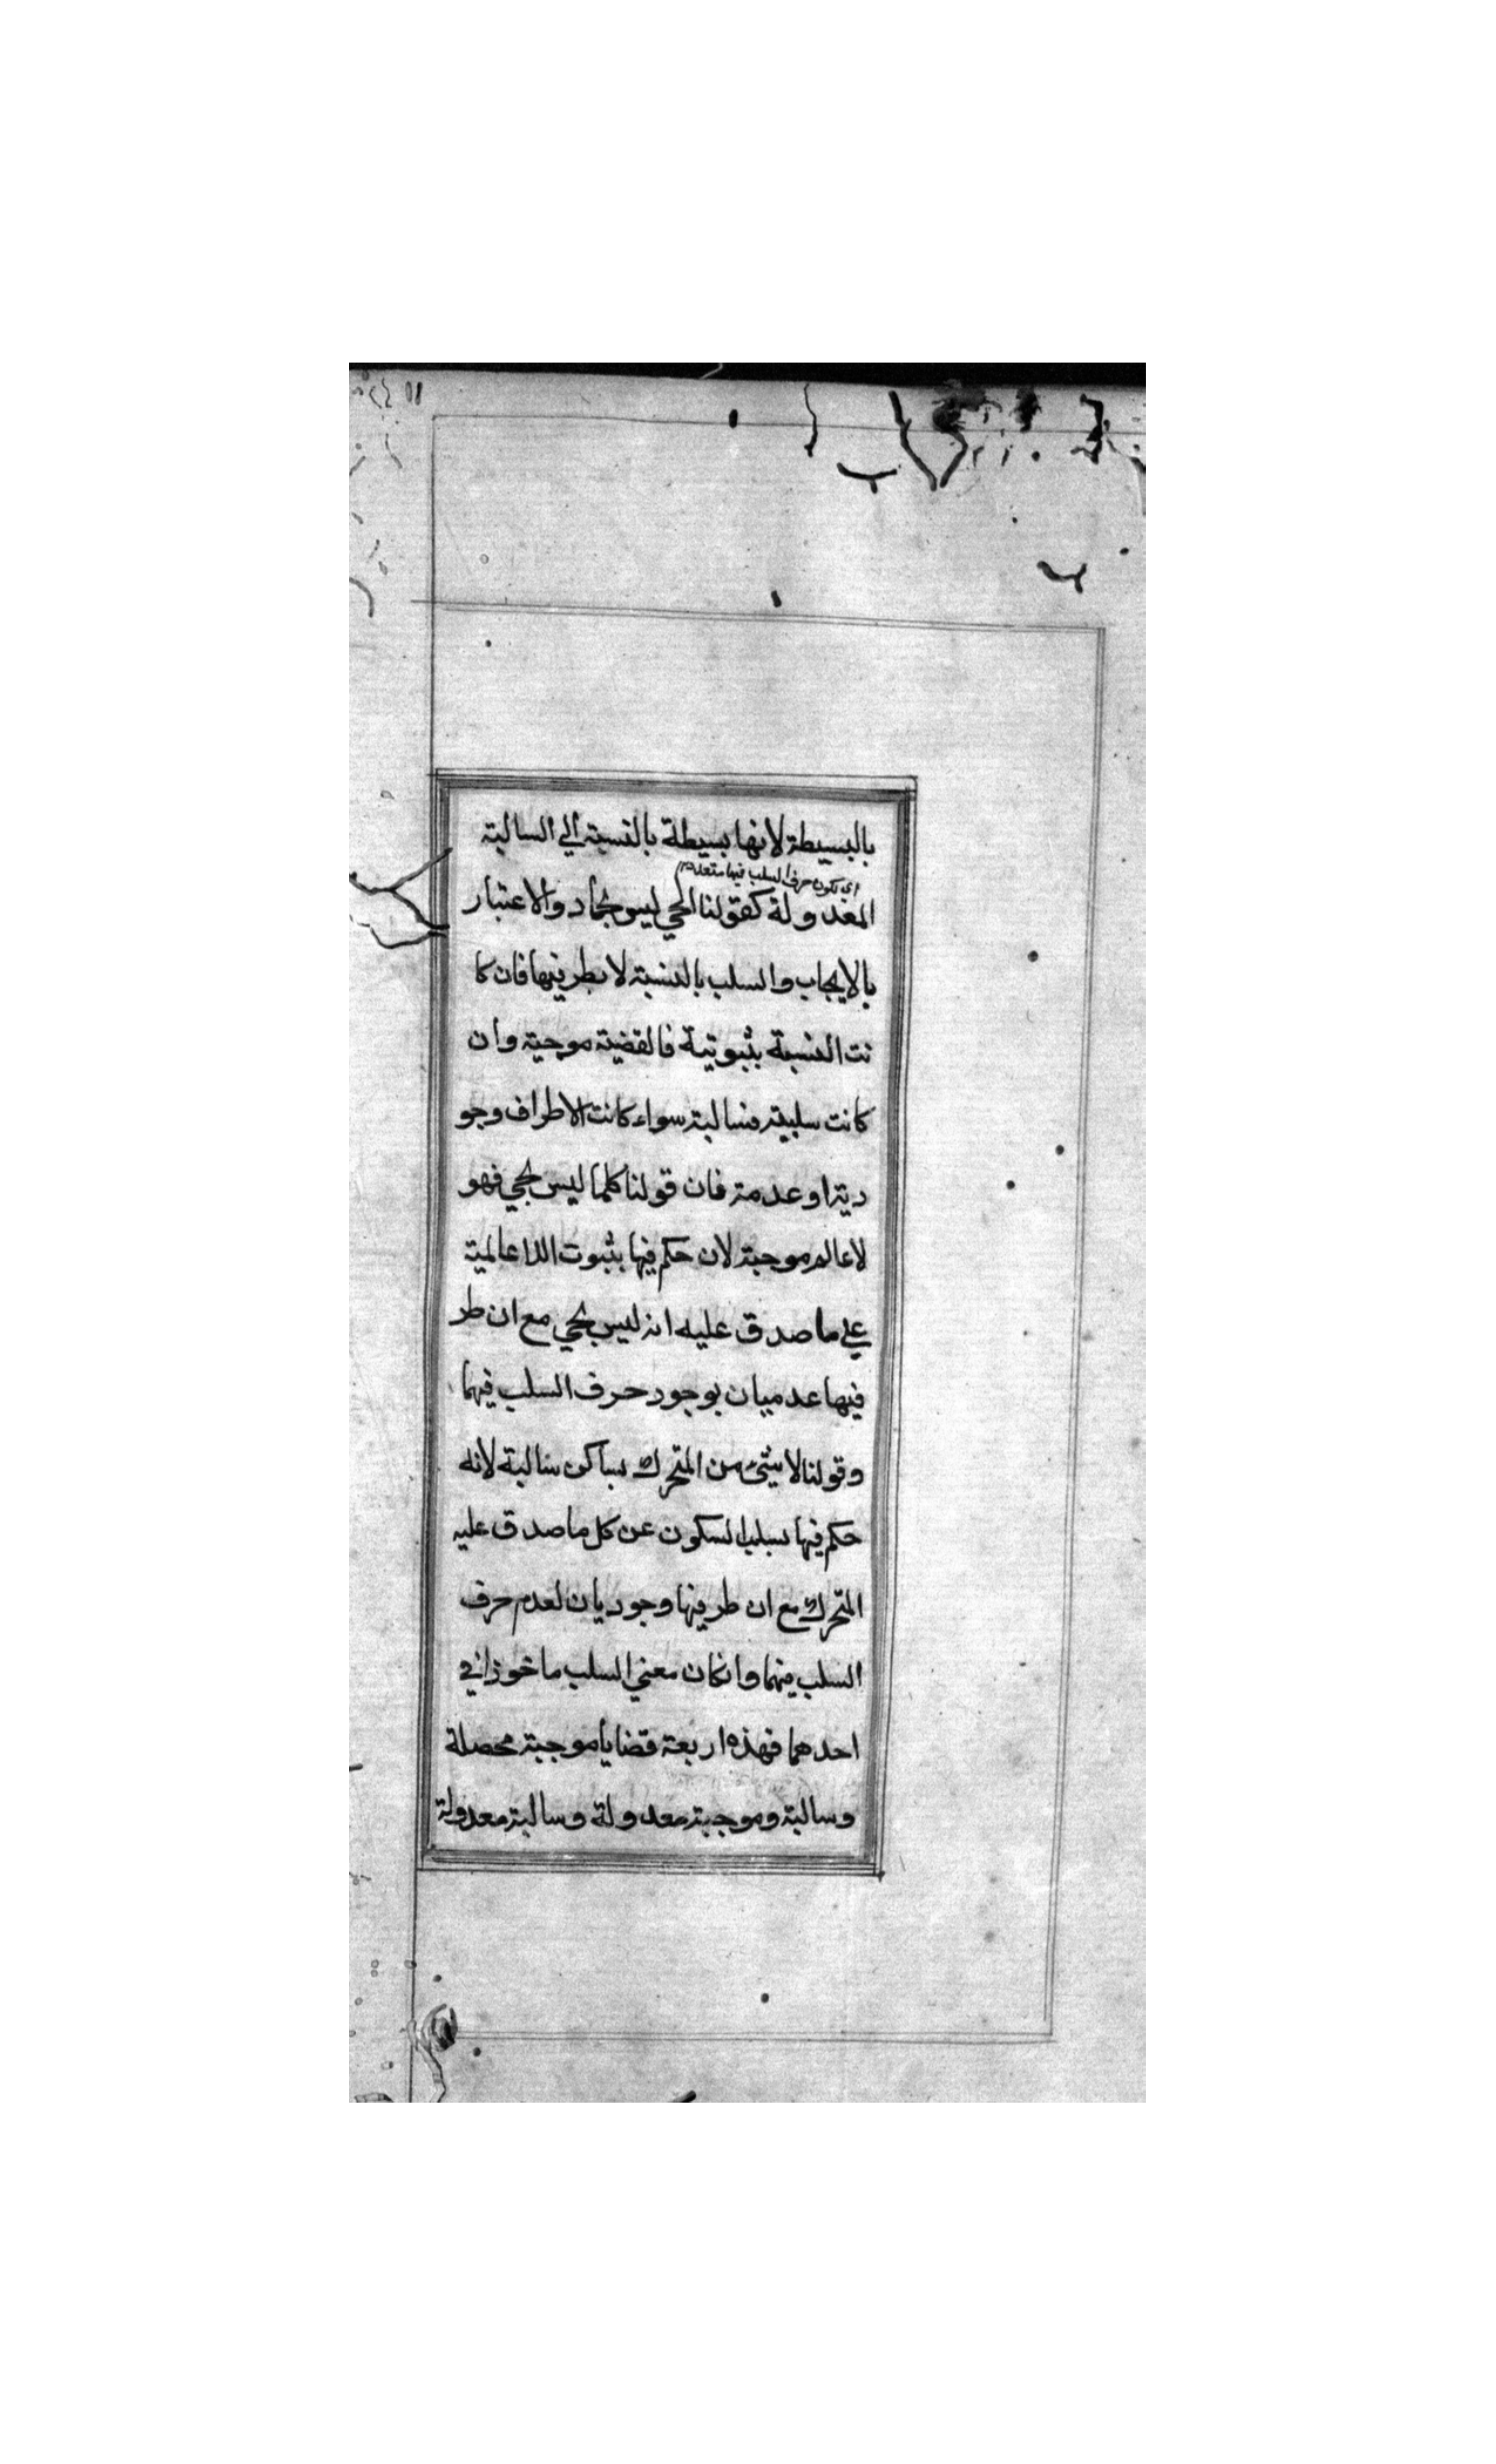 بالبسيطة لانها بسيطة بالنسبة الي السالبة
اي يكون حرف السلب فيها متعددا
المعدولة كقولنا الحي ليس بجماد والاعتبار
بالايجاب والسلب بالنسبة لا بطرفيها فان كا
نت النسبة بثبوتية فالقضية موجبة وان
كانت سلبية فسالبة سواء كانت الاطراف وجو
دية او عدمة فان قولنا كلما ليس بحي فهو
لاعالم موجبة لان حكم فيها بثبوت اللاعالمية
علي ما صدق عليه انه ليس بحي مع ان طر
فيها عدميان بوجود حرف السلب فيهما
وقولنا لا شيئ من المتحرك بساكن سالبة لانه
حكم فيها بسلب السكون عن كل ما صدق عليه
المتحرك مع ان طرفيها وجوديان لعدم حرف
السلب فيهما وانكان معني السلب ماخوذا في
احدهما فهذه اربعة قضايا موجبة محصلة
وسالبة وموجبة معدولة وسالبة معدولة